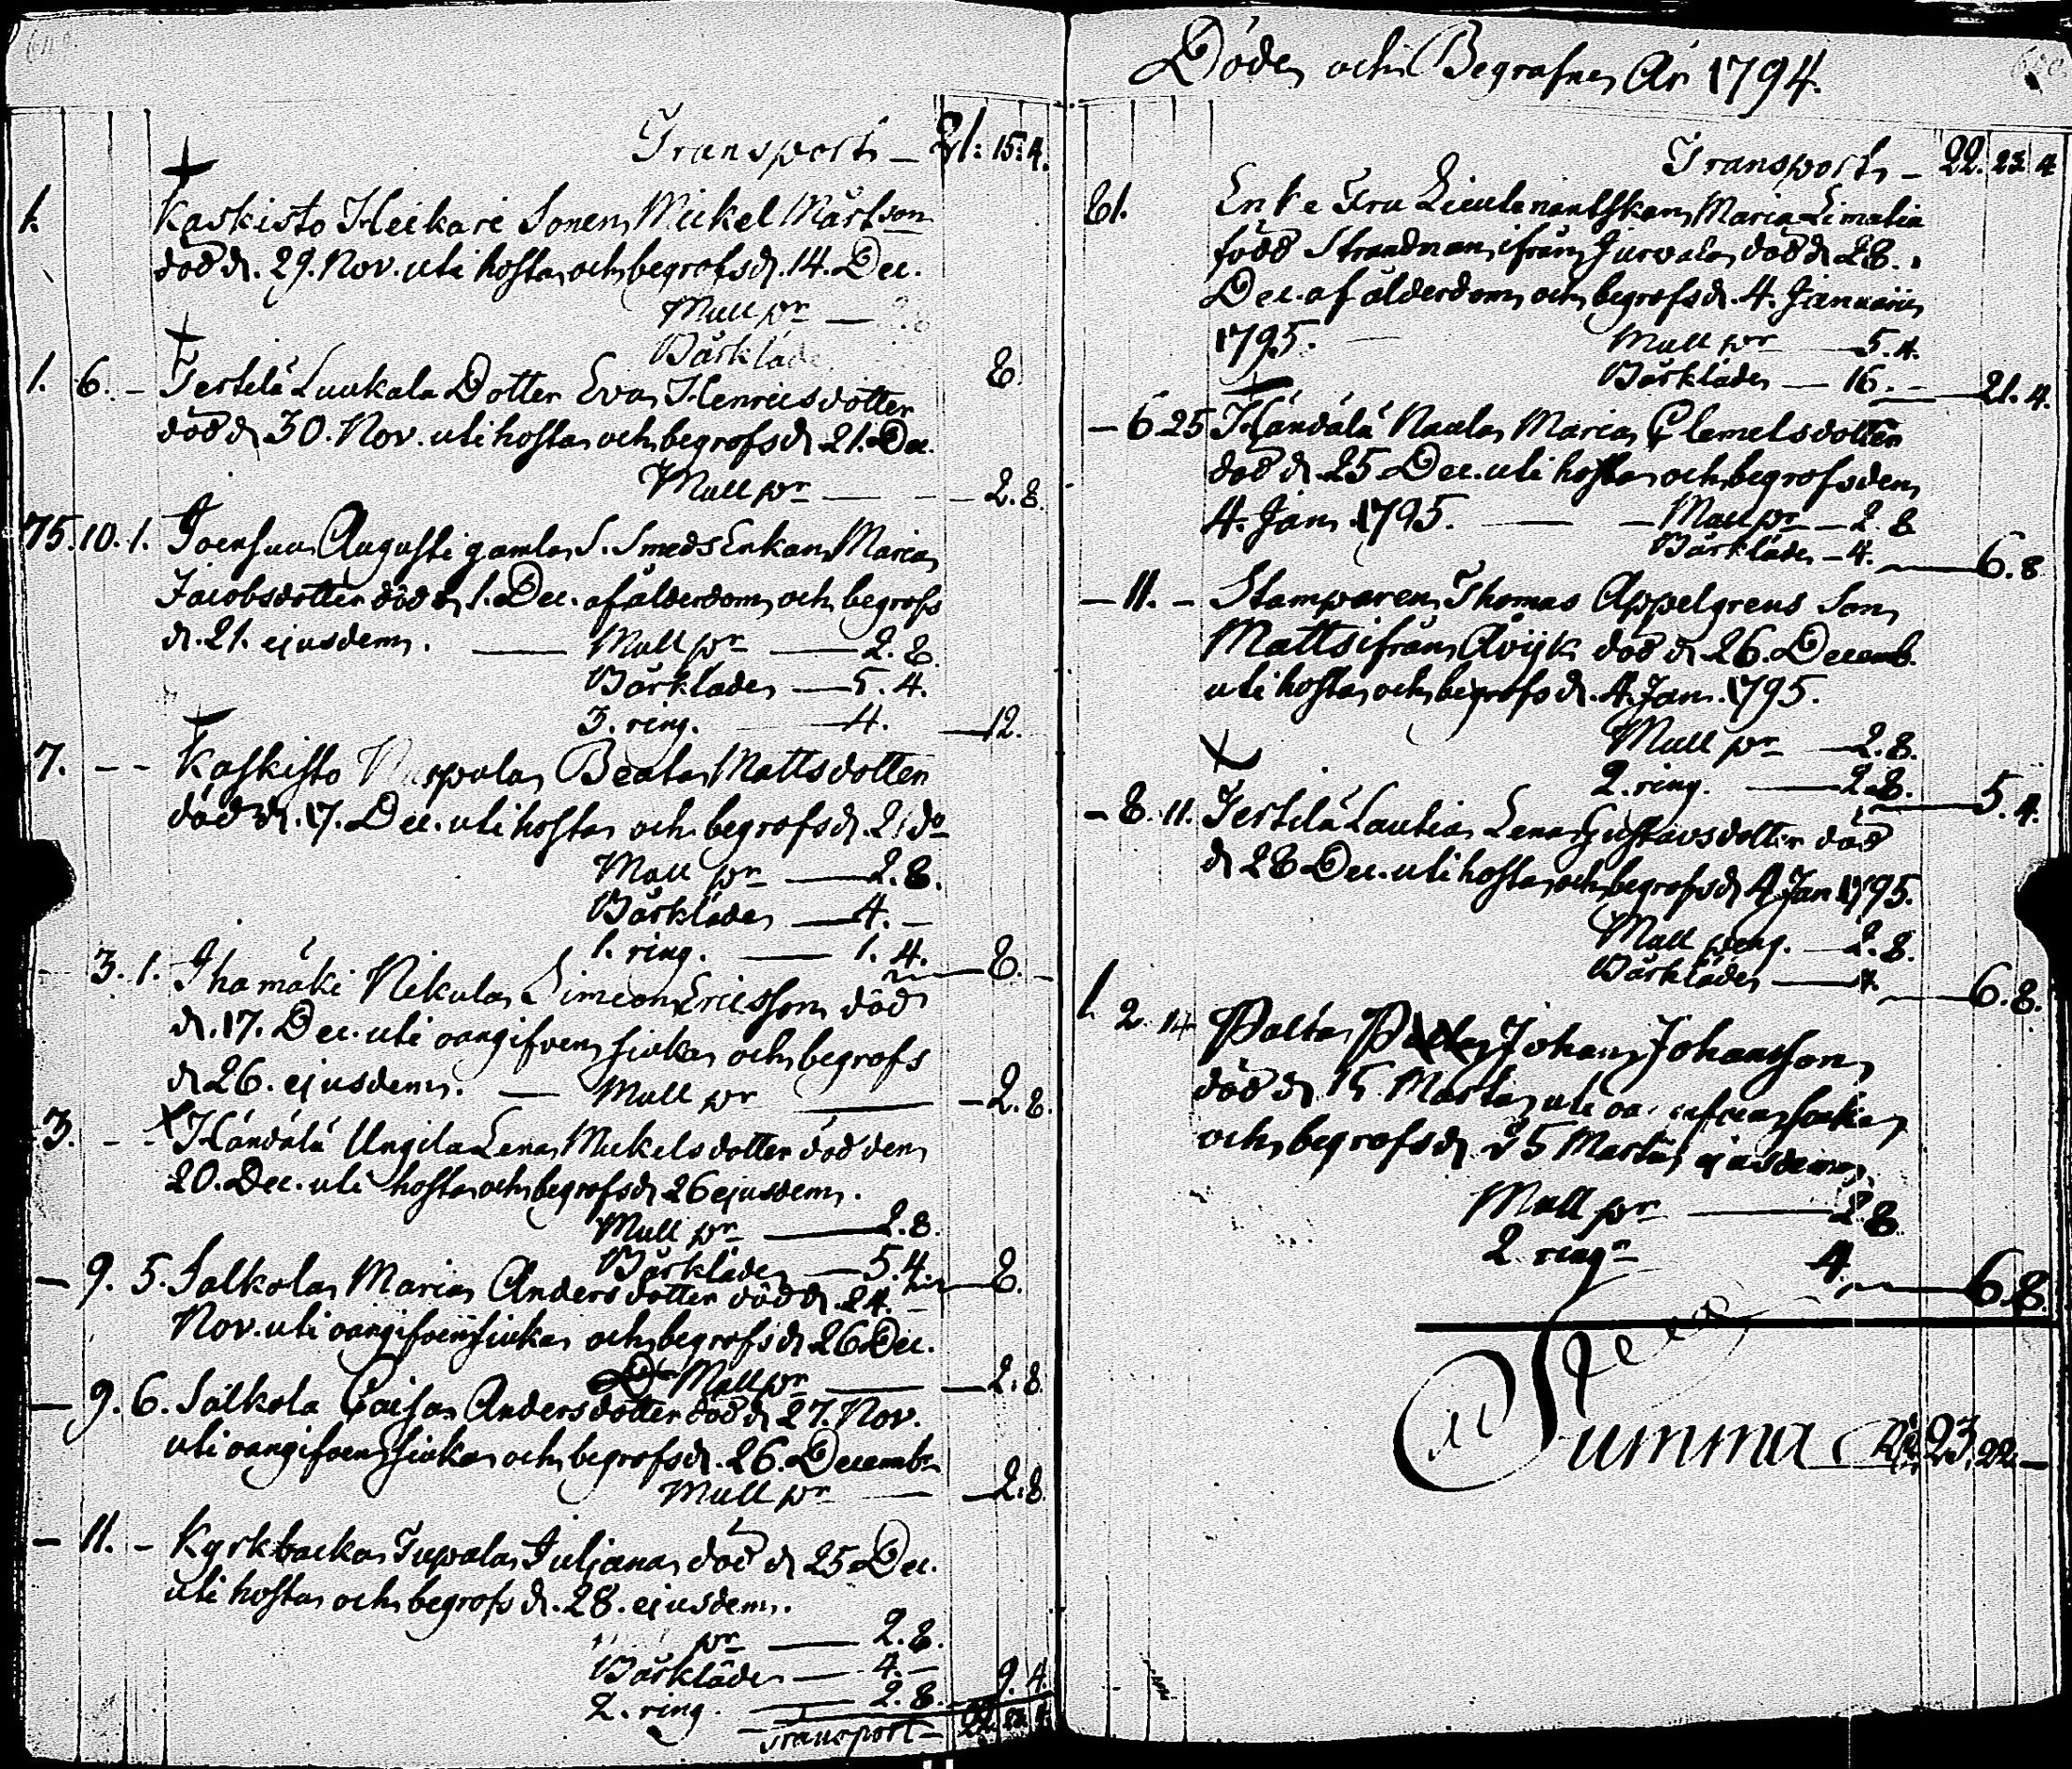 Transport – 21. 15. 4.
1. Kaskisto Heikari Sonen Mickel Mårtson
död d. 29. Nov. uti hosta och begrofs d. 14. Dec.
Mull pr — 2.8
Bårkläde 8.
1. 6. – Tertilä Luukala Dotter Eva Henricsdotter
död d. 30. Nov. uti hosta och begrofs d. 21. Dec.
Mull pr — — 2.8.
75. 10. 1. Joensuu Augusti gamla S. Smeds Enkan Maria
Jacobsdotter död d. 1. Dec. af ålderdom och begrofs
d. 21. ejusdem. — Mull pr — 2.8.
Bårkläde — 5.4.
3. ring. — 4. — 12.
7. – – Kaskisto Beata Mattsdotter
död d. 17. Dec. uti hosta och begrofs d. 21 do
Mull pr — 2.8.
Bårkläde — 4. –
1. ring. — 1.4. — 8. –
– 3. 1. Ihamäki Nikula Simeon Ericsson död
d. 17. Dec. uti oangifven siuka och begrofs
d. 26. ejusdem. — Mull pr — – 2.8.
3. – – Händälä Ungila Lena Mickelsdotter död den
20. Dec. uti hosta och begrofs d. 26 ejusdem.
Mull pr — 2.8.
Bårkläde — 5.4. — 8.
– 9. 5. Salkola Maria Andersdotter död d. 24.
Nov. uti oangifven siuka och begrofs d. 26 Dec.
Mull pr — — 2.8.
– 9. 6. Salkola Caisa Andersdotter död d. 27. Nov.
uti oangifven siuka och begrofs d. 26. Decemb.
Mull pr — — 2.8.
– 11. – Kyrkbacka Tupala Juljana död d. 25 Dec.
uti hosta och begrofs d. 28. ejusdem.
pr — 2.8.
Bårkläde — 4. –
2. ring. — 2.8. — 9.4.
Transport – 22.
Döde och Begrafne År 1794.
Transport – 22. 23. 4
81. Enke Fru Lieutenantskan Maria Limatia
född Strandman ifrån Jurvala död d. 28.
Dec. af ålderdom och begrofs d. 4. Januarii
1795. — Mull pr — 5.4.
Bårkläde — 16. – — 21.4.
– 6 25 Händälä Naula Maria Clemetsdotter
död d. 25 Dec. uti hosta och begrofs den
4. Jan. 1795. — – Mull pr – 2.8
Bårkläde – 4. — 6.8
– 11. – Stamparen Thomas Appelgrens Son
Matts ifrån Åvijk död d. 26. Decemb.
uti hosta och begrofs d. 4. Jan. 1795.
Mull pr — 2.8.
2. ring. — 2.8. — 5.4.
– 8. 11. Tertilä Lautia Lena Gustavsdotter död
d. 28 Dec. uti hosta och begrofs d. 4 Jan 1795.
Mull peng. — 2.8.
Bårkläde — 4. — 6.8.
1. 2. 14 Palta Johan Johansson
död d. 15 Martii uti siuka
och begrofs d. 25 Martii ejusdem
Mull pr — 2.8
2 ringr 4. — 6.8.
Summa Rd 23. 22. –